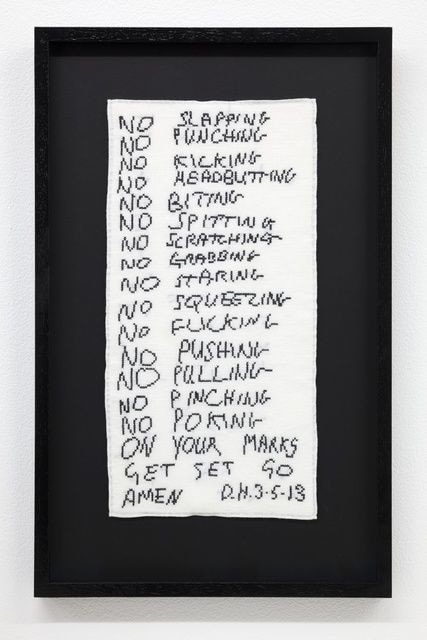 NO SLAPPING
NO PUNCHING
NO KICKING
NO HEADBUTTING
NO BITTING
NO SPITTING
NO SCRATCHING
NO GRABBING
NO STARING
NO SQUEEZING
NO FLICKING
NO PUSHING
NO PULLING
NO PINCHING
NO POKING
ON YOUR MARKS
GET SET GO
AMEN D.H.3-5-13